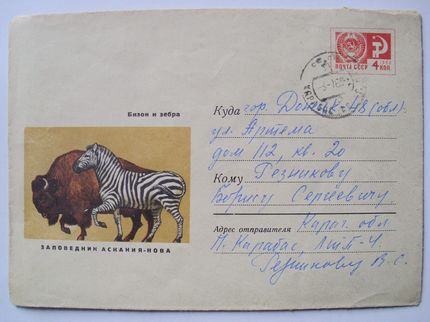 ПОЧТА СССР
4 КОП
Бизон и зебра
Куда гор. Донецк-48 (обл).
ул. Артема
дом 112, кв. 20
Кому Резникову
Борису Сергеевичу
Адрес отправителя Караг. обл
п. Карабас,
Резникову В. С.
ЗАПОВЕДНИК АСКАНИЯ-НОВА